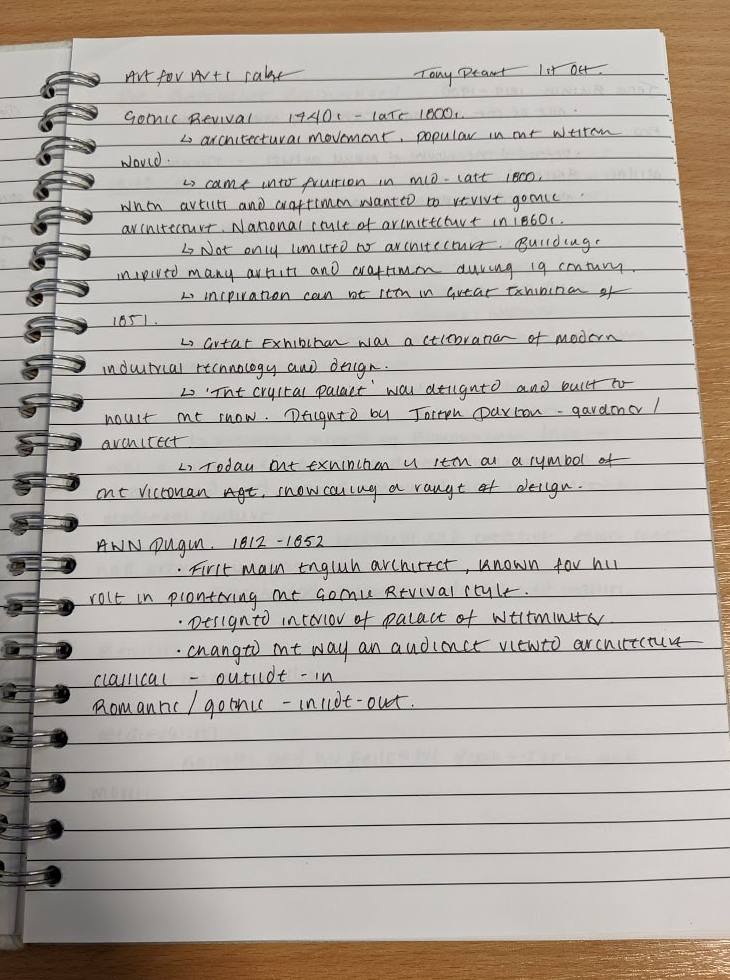 Art for Arts sake Tony Peart 1st Oct.
Gothic Revival 1740s - late 1800s.
↳ architectural movement, popular in the Western
World.
↳ came into fruition in mid-late 1800.
When artists and craftsmen wanted to revive gothic
architecture. National style of architecture in 1860s.
↳ Not only limited to architecture. Buildings
inspired many artists and craftsmen during 19 century.
↳ inspiration can be seen in Great Exhibition of
1851.
↳ Great Exhibition was a celebration of modern
industrial technology and design.
↳ 'The crystal palace' was designed and built to
house the show. Designed by Joseph Paxton - gardener /
architect
↳ Today the exhibition is seen as a symbol of
the Victorian Age, showcasing a range of design.
AWN Pugin. 1812 - 1852
• First main English architect, known for his
role in pioneering the Gothic Revival style.
• Designed interior of palace of Westminster
• changed the way an audience viewed architecture
classical - outside - in
Romantic / gothic - inside-out.